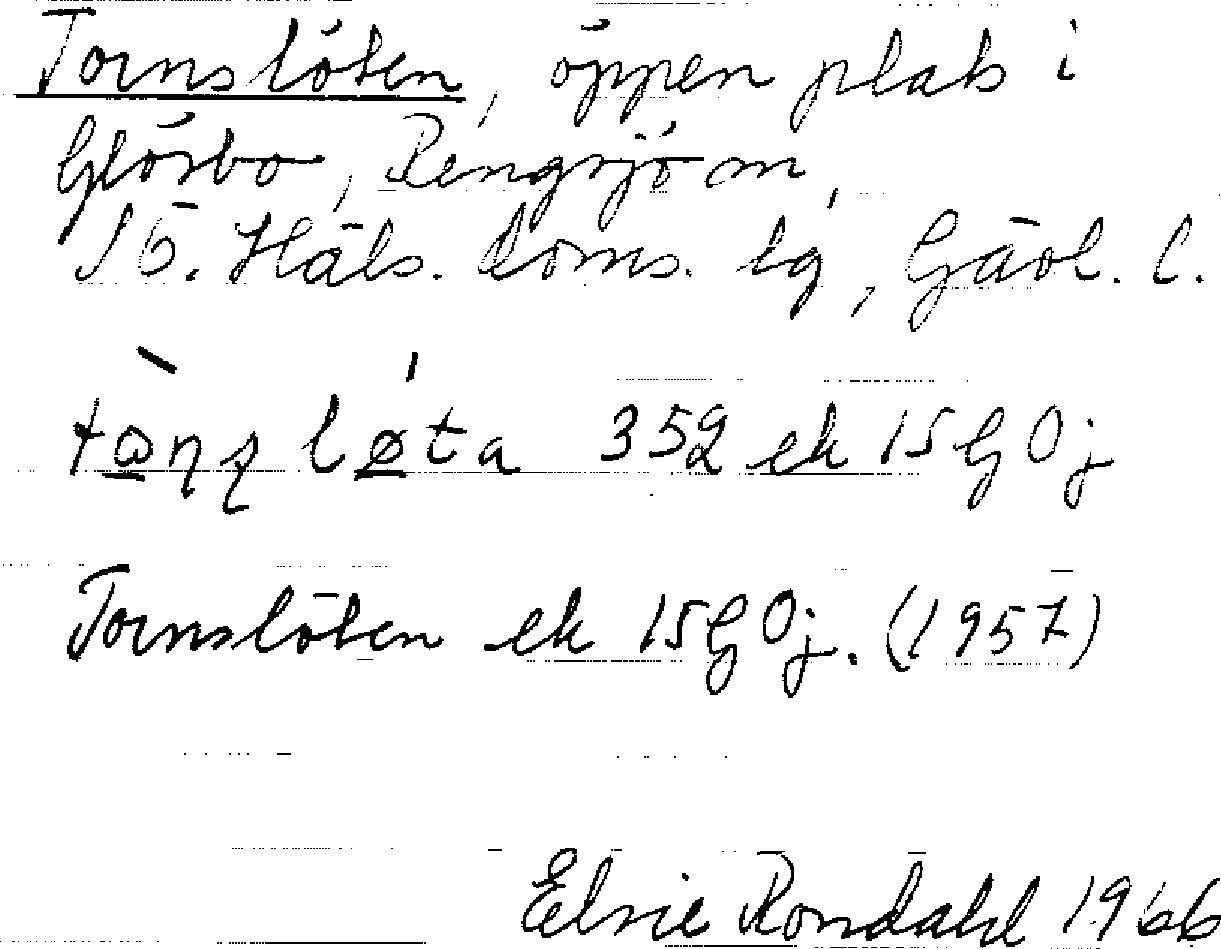 Tornslöten, öppen plats i
Glösbo, Rengsjö sn,
Sö. Häls. doms. lg, Gävl. l.
tɷ̀ɳʂlǿta 352 ek 15 G Oj
Tornslöten ek 15 G Oj. (1957)
Elsie Rondahl 1966